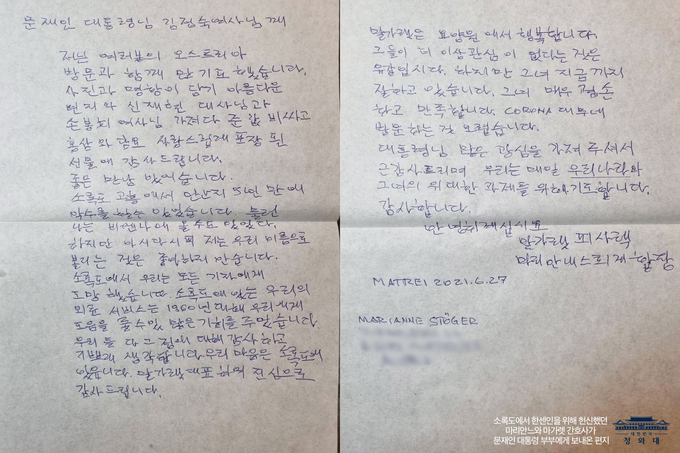 문재인 대통령님 김정숙여사님께
저는 여러분의 오스트리아
방문과 함께 만 기뻐 했습니다.
사진과 명함이 담기 아름다운
편지와 신재현 대사님과
손봉지 여사님 가져다 준 값 비싸고
홍삼과 담요 사랑스럽게 포장 된
선물에 감사드립니다.
좋은 만남 있었습니다.
소록도 고흥에서 만난지 만에
악수를 할수 있었습니다
나는 비엔나에 올 수도 있었다.
하지만 아시다시피 저는 우리 이름으로
불리는 것은 좋아하지 안습니다.
소록도에서 우리는 모든 기자에게
도망 했습니다. 소록도에 있는 우리의
서비스는 1960년대에 우리에게
도움을 줄수있 많은 기회를 주었습니다.
우리 둘 다 그 점에 대해 감사 하고
기쁘게 생각합니다 우리 마음은 소록도에
있읍니다. 말가렡 대표 하며 진심으로
감사드립니다.
말가렡은 요양원에서 행복합니다.
그들이 더 이상 관심이 없다는 것은
유감입시다. 하지만 그녀 지금 까지
잘하고 있습니다. 그녀 매우 겸손
하고 만족합니다. CORONA 때문에
방문하는 것 어렵습니다.
대통령님 많은 관심을 가져 주셔서
큰 감사드리며 우리는 매일 우리나라와
그녀의 위대한 과제를 위해 기도합니다.
감사합니다.
안녕히 계십시요
말가렡 피사렉
마리안내 스퇴거
MATREI 2021.6.27
MARIANNE STÖGER
소록도에서 한센인을 위해 헌신했던
마리안느와 마가렛 간호사가
문재인 대통령 부부에게 보내온 편지
대한민국
청와대